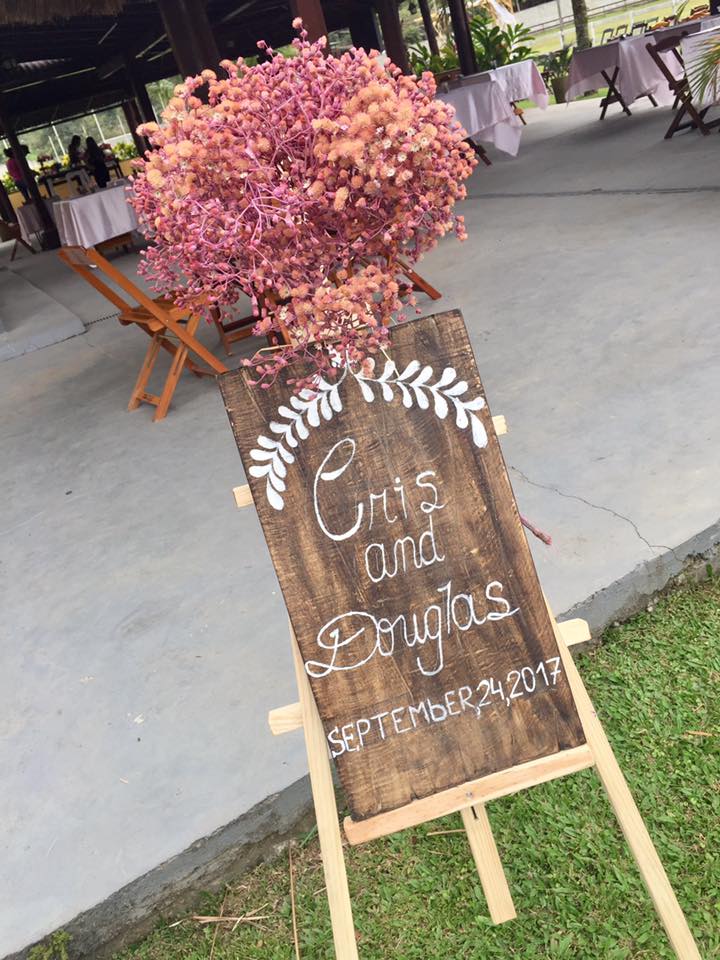 Cris
and
Douglas
SEPTEMbER,24,2017